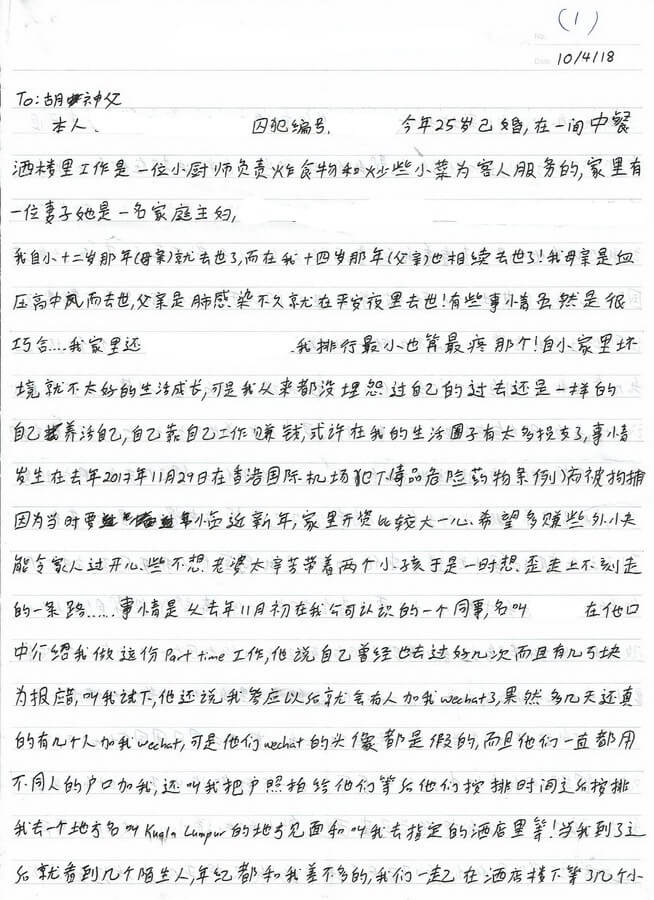 (1)
No.
Date 10/4/18
To:胡神父
本人、 囚犯编号. 今年25岁已婚,在一间中餐
酒楼里工作是一位小厨师负责炸食物和炒些小菜为客人服务的,家里有
一位妻子她是一名家庭主妇,
我自小十二岁那年(母亲)就去世了,而在我十四岁那年(父亲)也相续去世了!我母亲是血
压高中风而去世,父亲是肺感染不久就在平安夜里去世!有些事情虽然是很
巧合....我家里还 .我排行最小也算最疼那个!自小家里环
境就不太好的生活成长,可是我从来都没埋怨过自己的过去还是一样的
自己养活自己,自己靠自己工作赚钱,或许在我的生活圈子有太多损友了,事情
发生在去年2017年11月29日在香港国际机场犯下(毒品危险药物条例)而被拘捕
因为当时要临近新年,家里开资比较大一心.希望多赚些外小夫
能令家人过开心些不想.老婆太辛苦带着两个小孩于是一时想.歪走上不刻走
的一条路......事情是从去年11月初在我公司认识的一个同事,名叫 在他口
中介绍我做这份Part time工作,他说自己曾经也去过好几次而且有几万块
为报酬,叫我试下,他还说我答应以后就会有人加我wechat了,果然多几天还真
的有几个人加我wechat,可是他们wechat的头像都是假的,而且他们一直都用
不同人的户口加我,还叫我把户照拍给他们等后他们按排时间之后按排
我去一个地方名叫Kuala Lumpur的地方见面和叫我去指定的酒店里等!当我到了之
后就看到几个陌生人,年纪都和我差不多的,我们一起在酒店楼下等了几个小